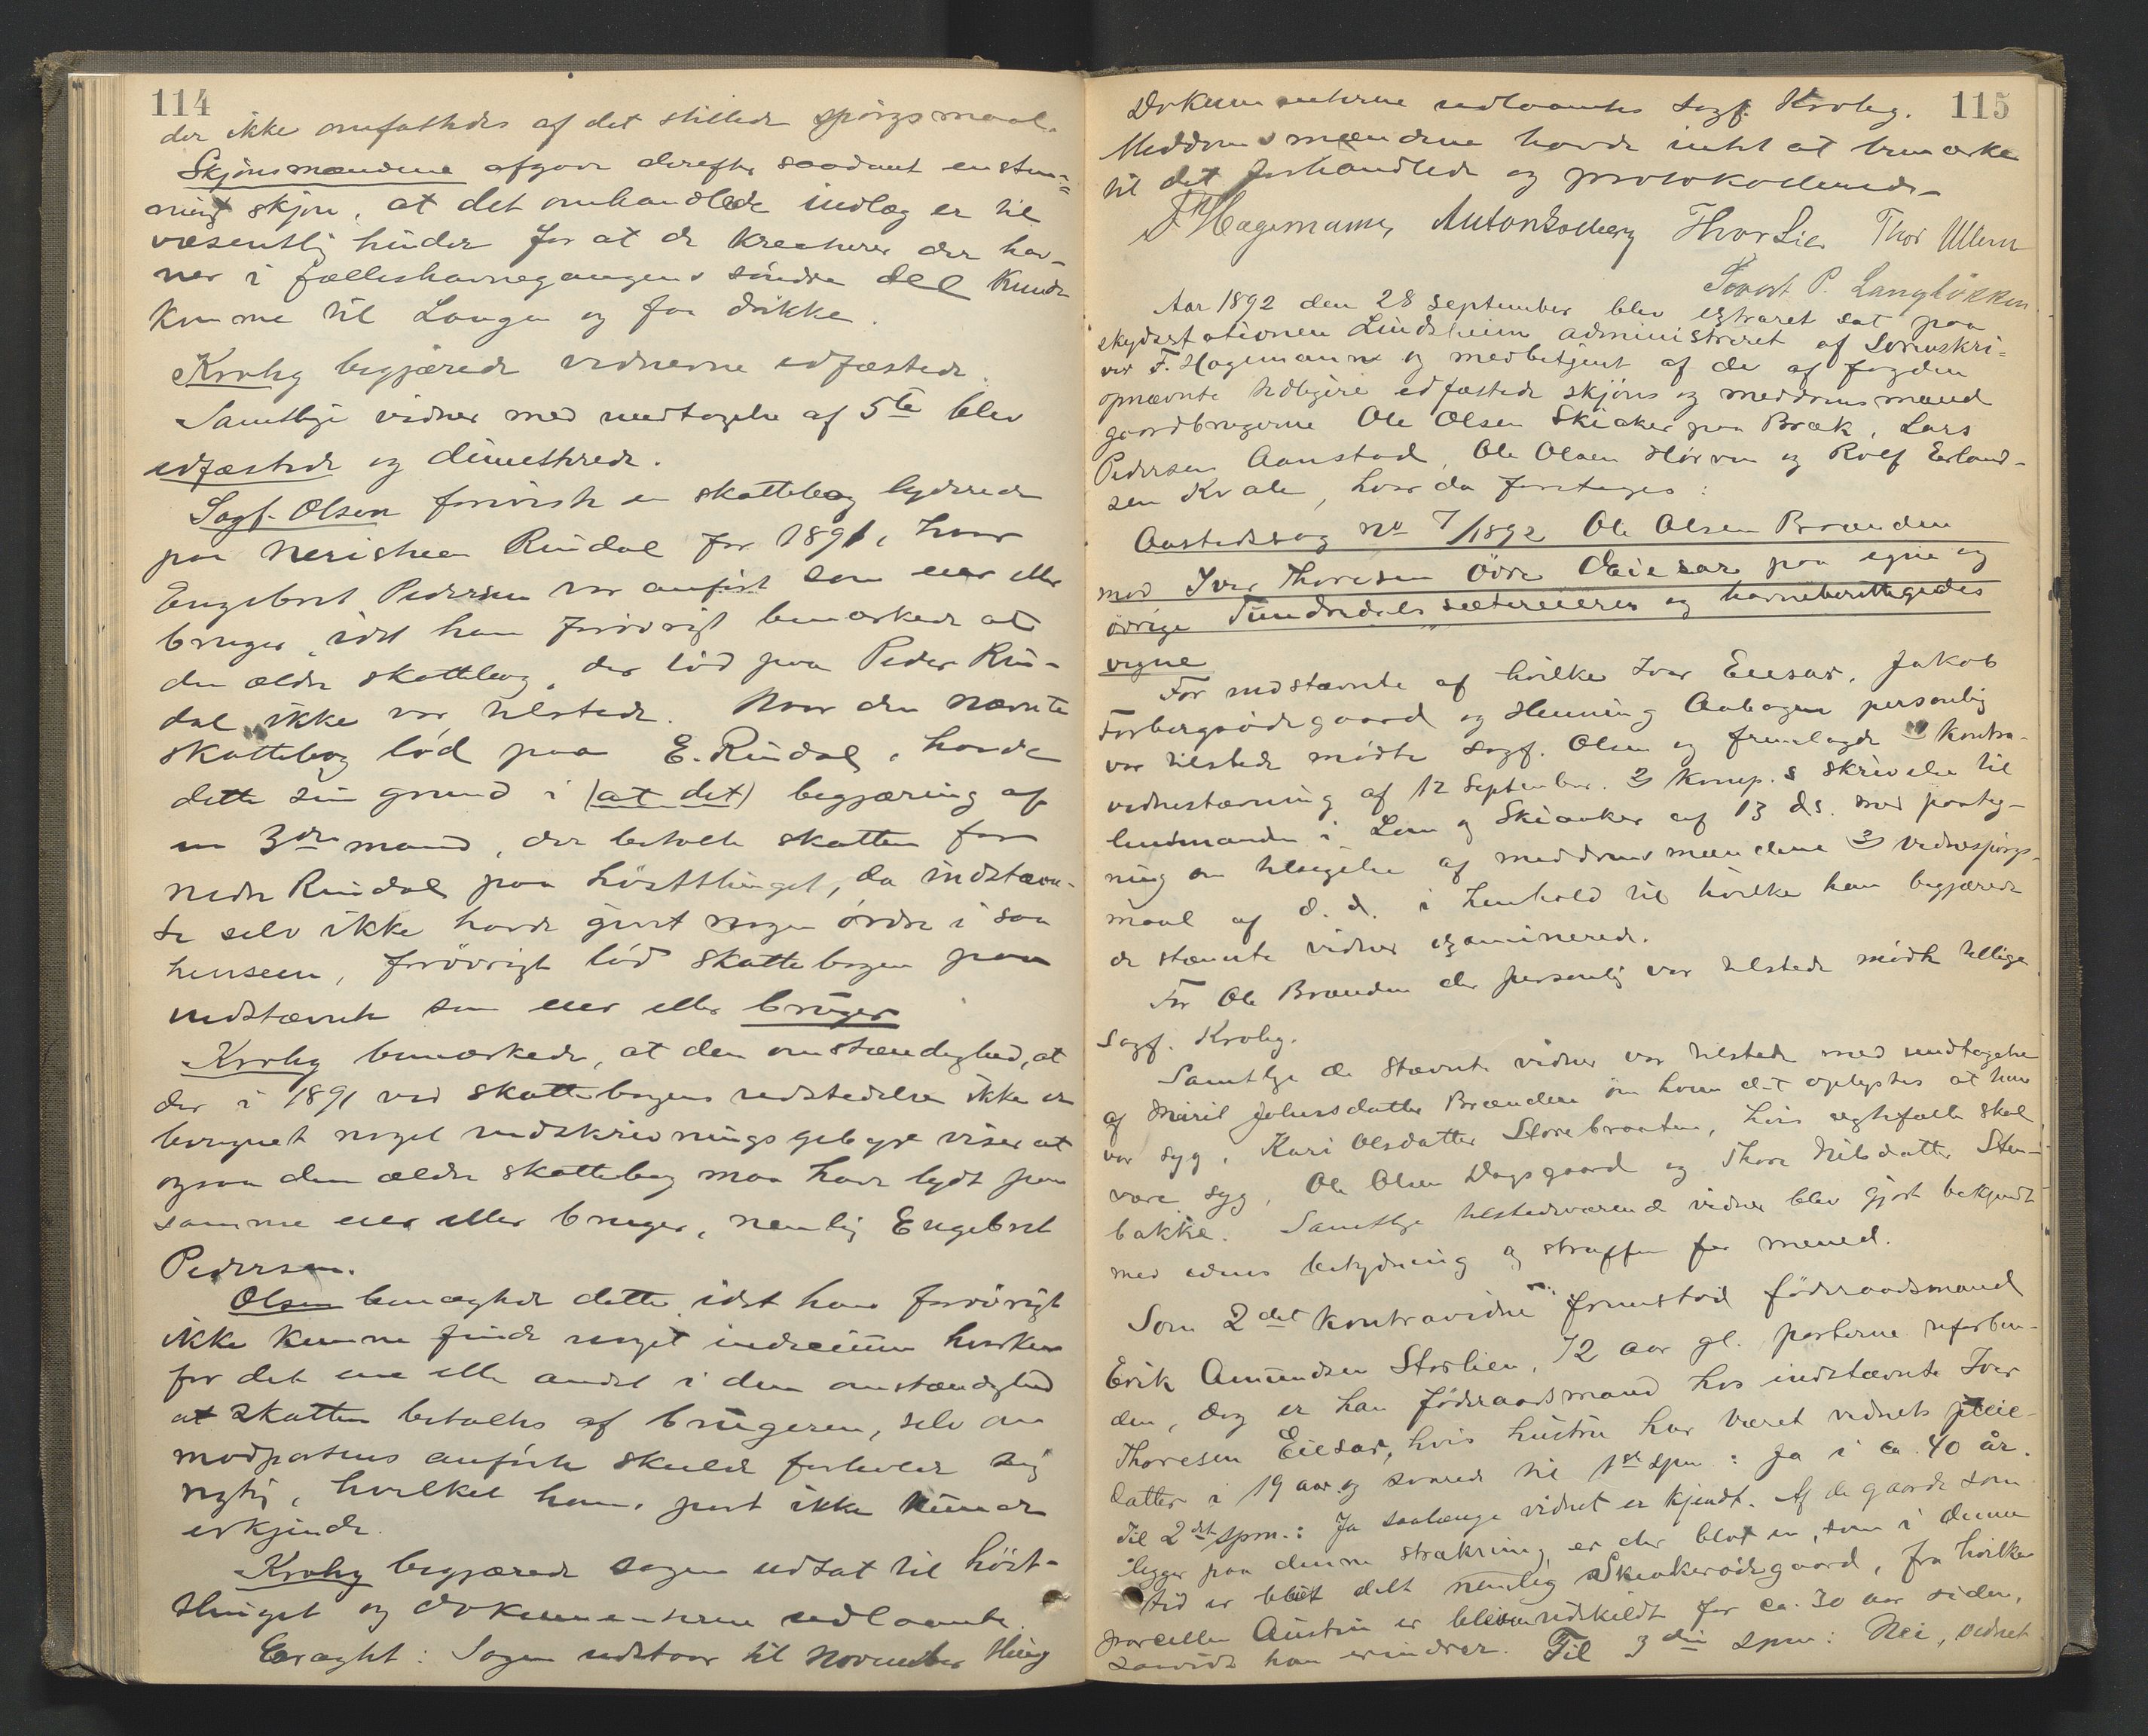 114
der ikke omfattedes af det stillede spørgsmaal.
Skjønsmændene afgav derefter saadant enstem=
migt skjøn, at det omhandlede indlæg er til
væsentlig hinder for at de kreaturer der hav-
ner i fælleshavnegangens søndre del kunde
komme til Laagen og faa drikke.
Krohg begjærede vidnerne edfæstede.
Samtlige vidner med undtagelse af 5te blev
edfæstede og dimitterede.
Sagf. Olsen foreviste en skattebog lydende
paa neristuen Rindal for 1891, hvor
Engebret Pedersen var anført som eier eller
bruger, idet han forøvrigt bemærkede at
den ældre skattebog, der lød paa Peder Rin-
dal ikke var tilstede. Naar den nævnte
skattebog lød paa E. Rindal, havde
dette sin grund i (at det) begjæring af
en 3die mand, der betalte skatten for
nedre Rindal paa høstthinget, da indstævn-
te selv ikke havde givet nogen ordre i saa
henseen, forøvrigt lød skattebogen paa
indstævnte som eier eller bruger
Krohg bemærkede, at den omstændighed, at
der i 1891 ved skattebogens udstedelse ikke er
beregnet noget indskrivningsgebyr viser at
ogsaa den ældre skattebog maa have lydt paa
samme eier eller bruger, nemlig Engebret
Pedersen.
Olsen benægtede dette idet han forøvrigt
ikke kunne finde noget indicium hverken
for det ene eller andet i den omstændighed
at skatten betaltes af brugeren, selv om
modpartens anførte skulde forholde sig
rigtig, hvilket hans part ikke kunde
erkjende.
Krohg begjærede sagen udsat til høst-
thinget og dokumenterne udlaante.
Eragtet: Sagen udstaar til November thing
115
Dokumenterne udlaantes sagf. Krohg.
Meddomsmændene havde intet at bemærke
til det forhandlede og protokollerede.
F Hagemann, Anton Solberg Thor Lie Thor Ullern
Sivert P. Langløkken
Aar 1892 den 28 September blev extraret sat paa
skydsstationen Lindsheim administreret af Sorenskri=
ver F. Hagemann og medbetjent af de af fogden
opnævnte tidligere edfæstede skjøns og meddomsmænd
gaardbrugerne Ole Olsen Skiaker paa Bræk, Lars
Pedersen Aanstad, Ole Olsen Hørven og Rolf Erland-
sen Kvale, hvor da foretoges:
Aastedssag No 7/1892 Ole Olsen Brænden
mod Iver Thoresen Øvre Eiesar paa egne og
øvrige Tundredals sætereieres og havneberettigedes
vegne
For indstævnte af hvilke Iver Eiesar, Jakob
Forbergsødegaard og Henning Aabagen personlig
var tilstede mødte sagf. Olsen og fremlagde 1) Kontra-
vidnestævning af 12 September. 2) Komp.s skrivelse til
lensmanden i Lom og Skiaaker af 13 ds. med paateg-
ning om tilsigelse af meddomsmændene 3) Vidnespørgs-
maal af d. d. i henhold til hvilke han begjærede
de stævnte vidner examinerede.
For Ole Brænden der personlig var tilstede mødte tillige
sagf. Krohg.
Samtlige de stævnte vidner var tilstede med undtagelse
af Marit Johnsdatter Brænden om hvem det oplystes at hun
var syg, Kari Olsdatter Storebraaten, hvis ægtefælle skal
være syg, Ole Olsen Dagsgaard og Thore Nilsdatter Sten-
bakke. Samtlige tilstedeværende vidner blev gjort bekjendt
med edens betydning og straffen for mened.
Som 2det kontravidne fremstod føderaadsmand
Erik Amundsen Storlien, 72 aar gl. parterne uforbun-
den, dog er han føderaadsmand hos indstævnte Iver
Thoresen Eiesar, hvis hustru har været vidnets pleie-
datter i 19 aar og svarede til 1ste spm: Ja i ca. 40 år.
Til 2det spm.: Ja saalænge vidnet er kjendt. Af de gaarde som
ligger paa denne strækning, er der blot en, som i denne
tid er blet delt nemlig Skeakerødegaard, fra hvilken
parcellen Austin er bleven udskildt for ca. 30 aar siden,
saavidt han erindrer. Til 3die spm: Nei, vidnet